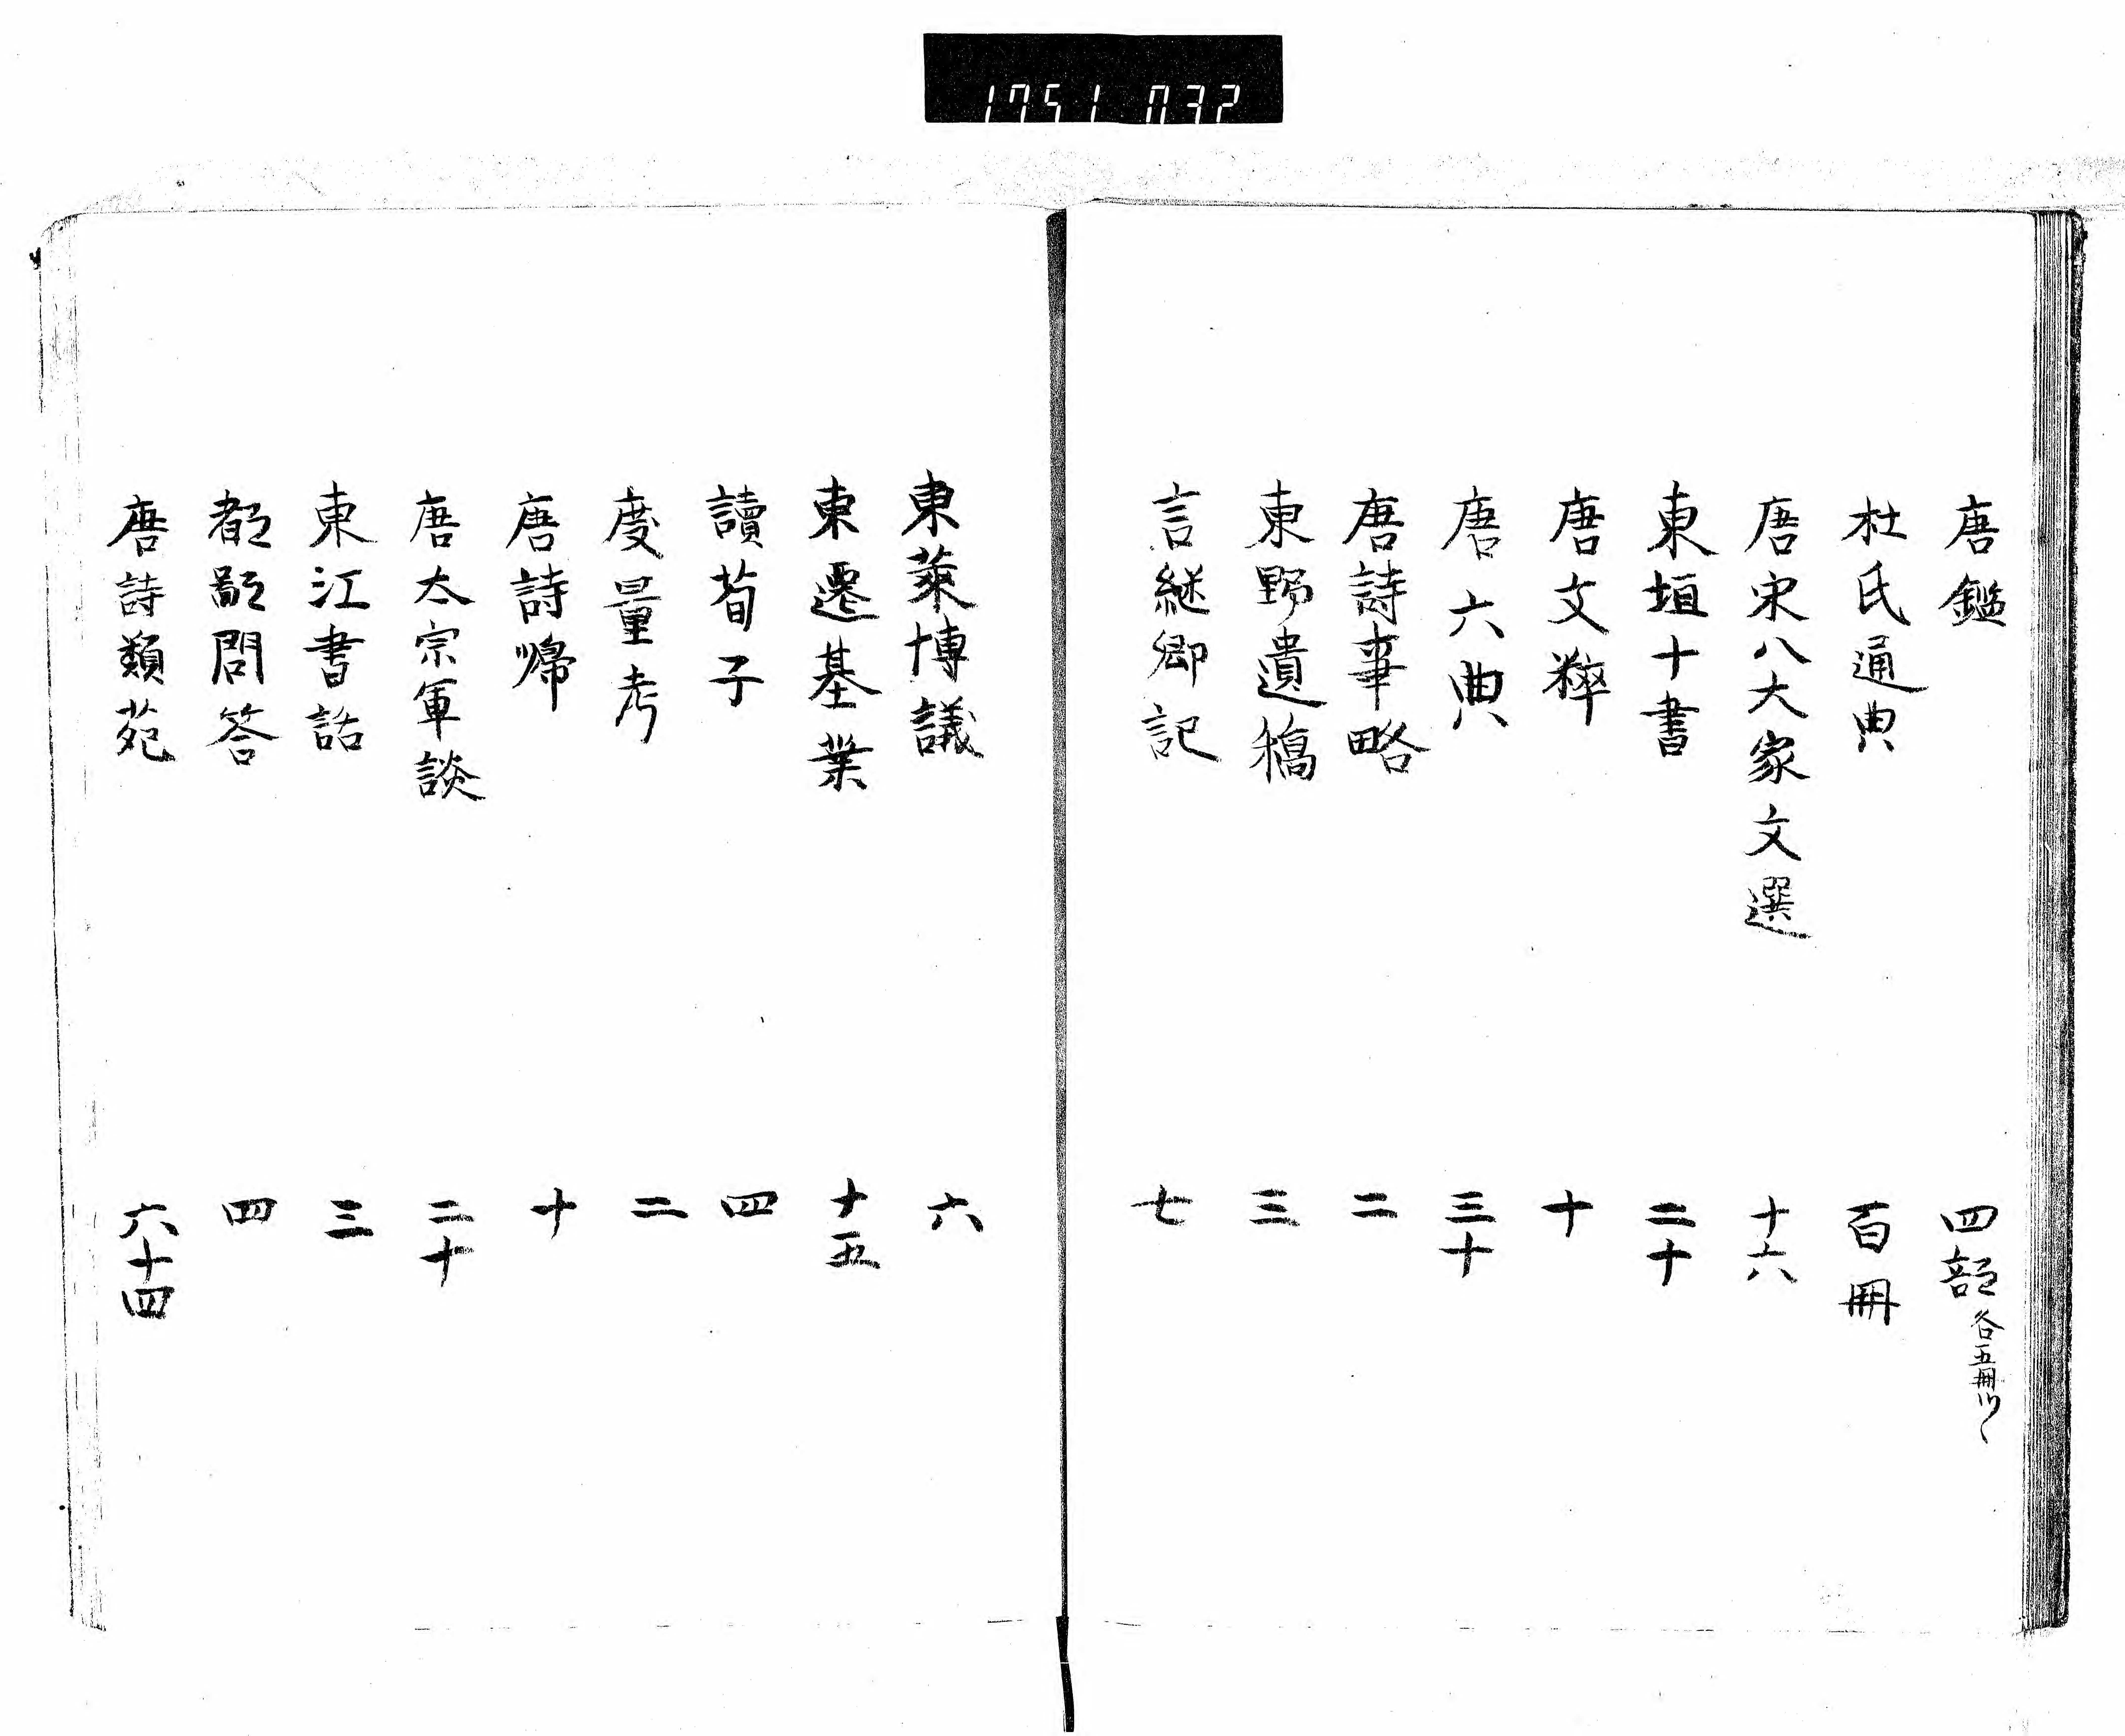 1751 032
唐鑑 四部 各五冊ツヽ
杜氏通典 百冊
唐宋八大家文選 十六
東垣十書 二十
唐文粹 十
唐六典 三十
唐詩事略 二
東野遺稿 三
言継卿記 七
東萊博議 六
東遷基業 十五
讀荀子 四
度量考 二
唐詩帰 十
唐太宗軍談 二十
東江書話 三
都鄙問答 四
唐詩類苑 六十四